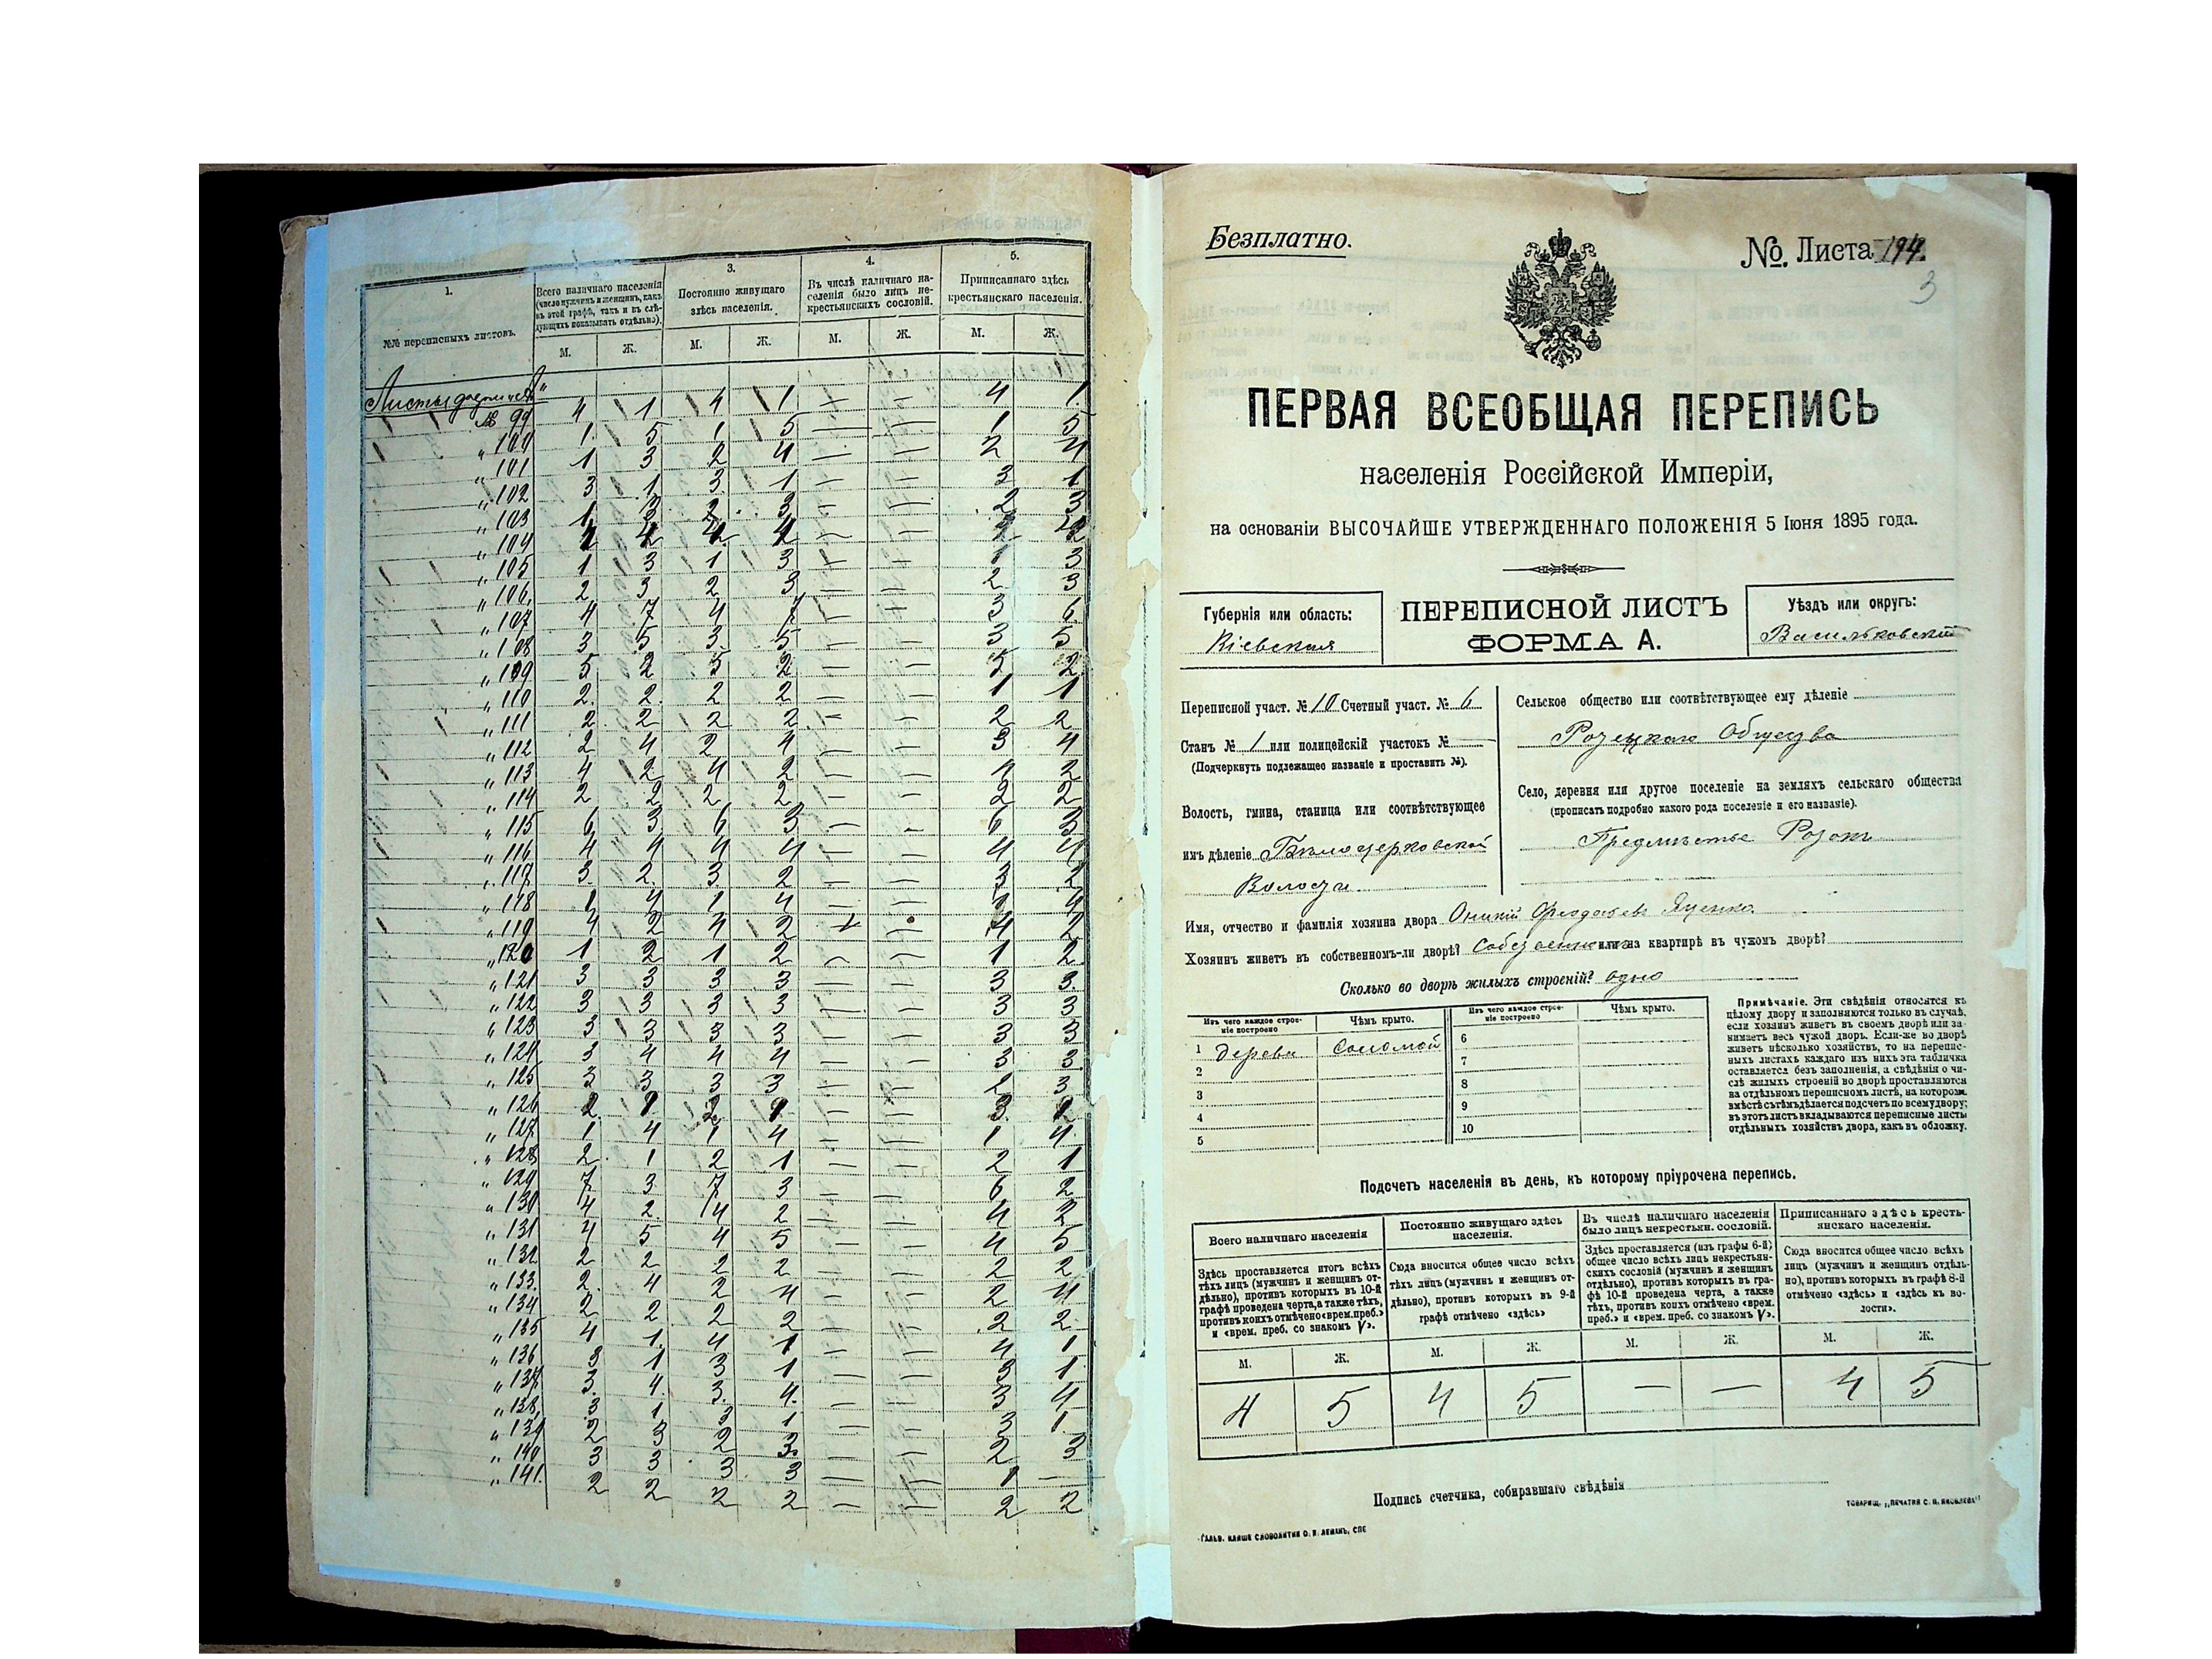 1.
№№ переписныхъ листовъ.
2.
Всего наличнаго населенія
(число мужчинъ и женщинъ, какъ
въ этой графѣ, такъ и въ слѣ-
дующихъ показывать отдѣльно).
3.
Постоянно живущаго
здѣсь населенія.
4.
Въ числѣ наличнаго на-
селенія было лицъ не-
крестьянскихъ сословій.
5.
Приписаннаго здѣсь
крестьянскаго населенія.
М. Ж. М. Ж. М. Ж. М. Ж.
Листы
№ 99 4 1 4 1 — — 4 1
„ 100 1 5 1 5 — — 1 5
„ 101 1 3 2 4 — — 2 4
„ 102 3 1 3 1 — — 3 1
„ 103 1 3 2 3 — — 2 3
„ 104
„ 105 1 3 1 3 — — 1 3
„ 106 2 3 2 3 — — 2 3
„ 107 4 7 4 7 — — 3 6
„ 108 3 5 3 5 — — 3 5
„ 109 5 2 5 2 — — 5 2
„ 110 2 2 2 2 — — 1 1
„ 111 2 2 2 2 — — 2 2
„ 112 2 4 2 4 — — 3 4
„ 113 4 2 4 2 — —
„ 114 2 2 2 2 — — 2 2
„ 115 6 3 6 3 — — 6 3
„ 116 4 4 4 4 — — 4 4
„ 117 3 2 3 2 — — 3 2
„ 118 1 4 1 4 — — 1 4
„ 119 4 2 4 2 4 2
„ 120 1 2 1 2 — — 1 2
„ 121 3 3 3 3 — — 3 3
„ 122 3 3 3 3 — — 3 3
„ 123 3 3 3 3 — — 3 3
„ 124 3 4 4 4 — — 3 3
„ 125 3 3 3 3 — — 2 3
„ 126 2
„ 127 1 4 1 4 — — 1 4
„ 128 2 1 2 1 — — 2 1
„ 129 7 3 7 3 — — 6 2
„ 130 4 2 4 2 — — 4 2
„ 131 4 5 4 5 — — 4 5
„ 132 2 2 2 2 — — 2 2
„ 133 2 4 2 4 — — 2 4
„ 134 2 2 2 2 — — 2 2
„ 135 4 1 4 1 — — 4 1
„ 136 3 1 3 1 — — 3 1
„ 137 3 4 3 4 — — 3 4
„ 138 3 1 3 1 — — 3 1
„ 139 2 3 2 3 — — 2 3
„ 140 3 3 3 3 — — 1 —
„ 141 2 2 2 2 — — 2 2
Безплатно.
No. Листа 194.
3
ПЕРВАЯ ВСЕОБЩАЯ ПЕРЕПИСЬ
населенія Россійской Имперіи,
на основаніи ВЫСОЧАЙШЕ УТВЕРЖДЕННАГО ПОЛОЖЕНІЯ 5 Іюня 1895 года.
Губернія или область:
Кіевская
ПЕРЕПИСНОЙ ЛИСТЪ
ФОРМА А.
Уѣздъ или округъ:
Васильковскій
Переписной участ. № 10 Счетный участ. № 6
Станъ № 1 или полицейскій участокъ №
(Подчеркнуть подлежащее названіе и проставить №).
Волость, гмина, станица или соотвѣтствующее
имъ дѣленіе Бѣлоцерковской
Волости
Сельское общество или соотвѣтствующее ему дѣленіе
Общества
Село, деревня или другое поселеніе на земляхъ сельскаго общества
(прописать подробно какого рода поселеніе и его названіе).
Предмѣстье Розокъ
Имя, отчество и фамилія хозяина двора Яценко.
Хозяинъ живетъ въ собственномъ-ли дворѣ? или на квартирѣ въ чужомъ дворѣ?
Сколько во дворѣ жилыхъ строеній? одно
Изъ чего каждое строе-
ніе построено
Чѣмъ крыто.
Изъ чего каждое строе-
ніе построено
Чѣмъ крыто.
1 дерева Соломой
2
3
4
5
6
7
8
9
10
Примѣчаніе. Эти свѣдѣнія относятся къ
цѣлому двору и заполняются только въ случаѣ,
если хозяинъ живетъ въ своемъ дворѣ или за-
нимаетъ весь чужой дворъ. Если-же во дворѣ
живетъ нѣсколько хозяйствъ, то на перепис-
ныхъ листахъ каждаго изъ нихъ эта табличка
оставляется безъ заполненія, а свѣдѣнія о чи-
слѣ жилыхъ строеній во дворѣ проставляются
на отдѣльномъ переписномъ листѣ, на которомъ
вмѣстѣ съ тѣмъ дѣлается подсчетъ по всему двору;
въ этотъ листъ вкладываются переписные листы
отдѣльныхъ хозяйствъ двора, какъ въ обложку.
Подсчетъ населенія въ день, къ которому пріурочена перепись.
Всего наличнаго населенія
Здѣсь проставляется итогъ всѣхъ
тѣхъ лицъ (мужчинъ и женщинъ от-
дѣльно), противъ которыхъ въ 10-й
графѣ проведена черта, а также тѣхъ,
противъ коихъ отмѣчено «врем. преб.»
и «врем. преб. со знакомъ V».
Постоянно живущаго здѣсь
населенія.
Сюда вносится общее число всѣхъ
тѣхъ лицъ (мужчинъ и женщинъ от-
дѣльно), противъ которыхъ въ 9-й
графѣ отмѣчено «здѣсь»
Въ числѣ наличнаго населенія
было лицъ некрестьян. сословій.
Здѣсь проставляется (изъ графы 6-й)
общее число всѣхъ лицъ некрестьян-
скихъ сословій (мужчинъ и женщинъ
отдѣльно), противъ которыхъ въ гра-
фѣ 10-й проведена черта, а также
тѣхъ, противъ коихъ отмѣчено «врем.
преб.» и «врем. преб. со знакомъ V».
Приписаннаго здѣсь кресть-
янскаго населенія.
Сюда вносится общее число всѣхъ
лицъ (мужчинъ и женщинъ отдѣль-
но), противъ которыхъ въ графѣ 8-й
отмѣчено «здѣсь» и «здѣсь къ во-
лости».
М. Ж. М. Ж. М. Ж. М. Ж.
4 5 4 5 — — 4 5
Подпись счетчика, собиравшаго свѣдѣнія
ТОВАРИЩ. „ПЕЧАТНЯ С. П. ЯКОВЛЕВА"
ГАЛЬВ. КЛИШЕ СЛОВОЛИТНИ О. И. ЛЕМАНЪ, СПБ